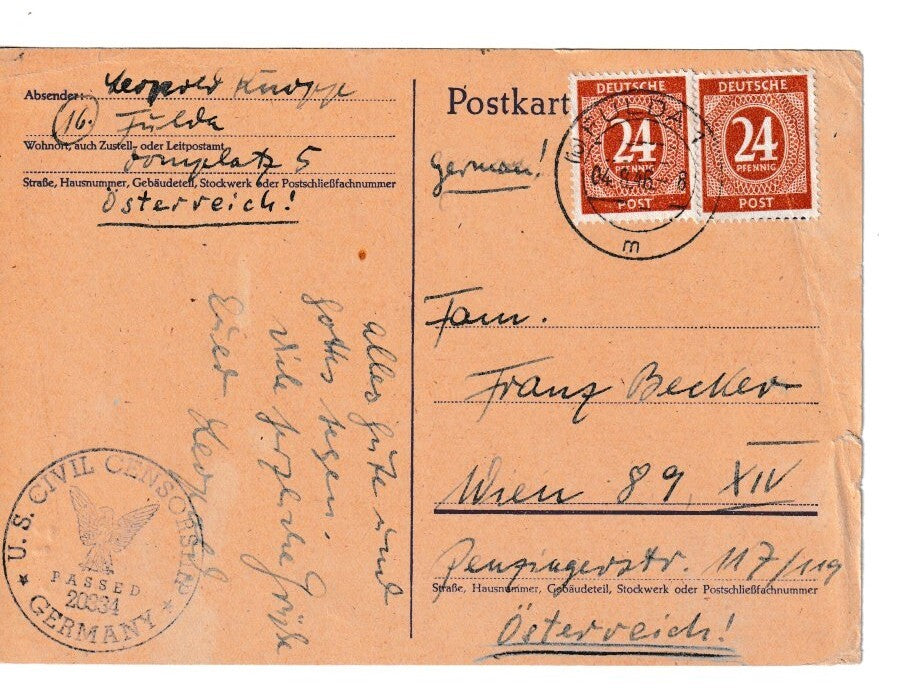 Absender: Leopold Knopp
(16) Fulda
Wohnort, auch Zustell- oder Leitpostamt
Domplatz 5
Straße, Hausnummer, Gebäudeteil, Stockwerk oder Postschließfachnummer
Österreich!
alles Gute und
Gottes Segen.
Viele herzliche Grüße
Euer Leopold
U.S. CIVIL CENSORSHIP
PASSED
20834
GERMANY
Postkart
german!
DEUTSCHE
24
PFENNIG
POST
DEUTSCHE
24
PFENNIG
POST
FULDA
m
Fam.
Franz Becker
Wien 89, XIV
Penzingerstr. 117/
Straße, Hausnummer, Gebäudeteil, Stockwerk oder Postschließfachnummer
Österreich!